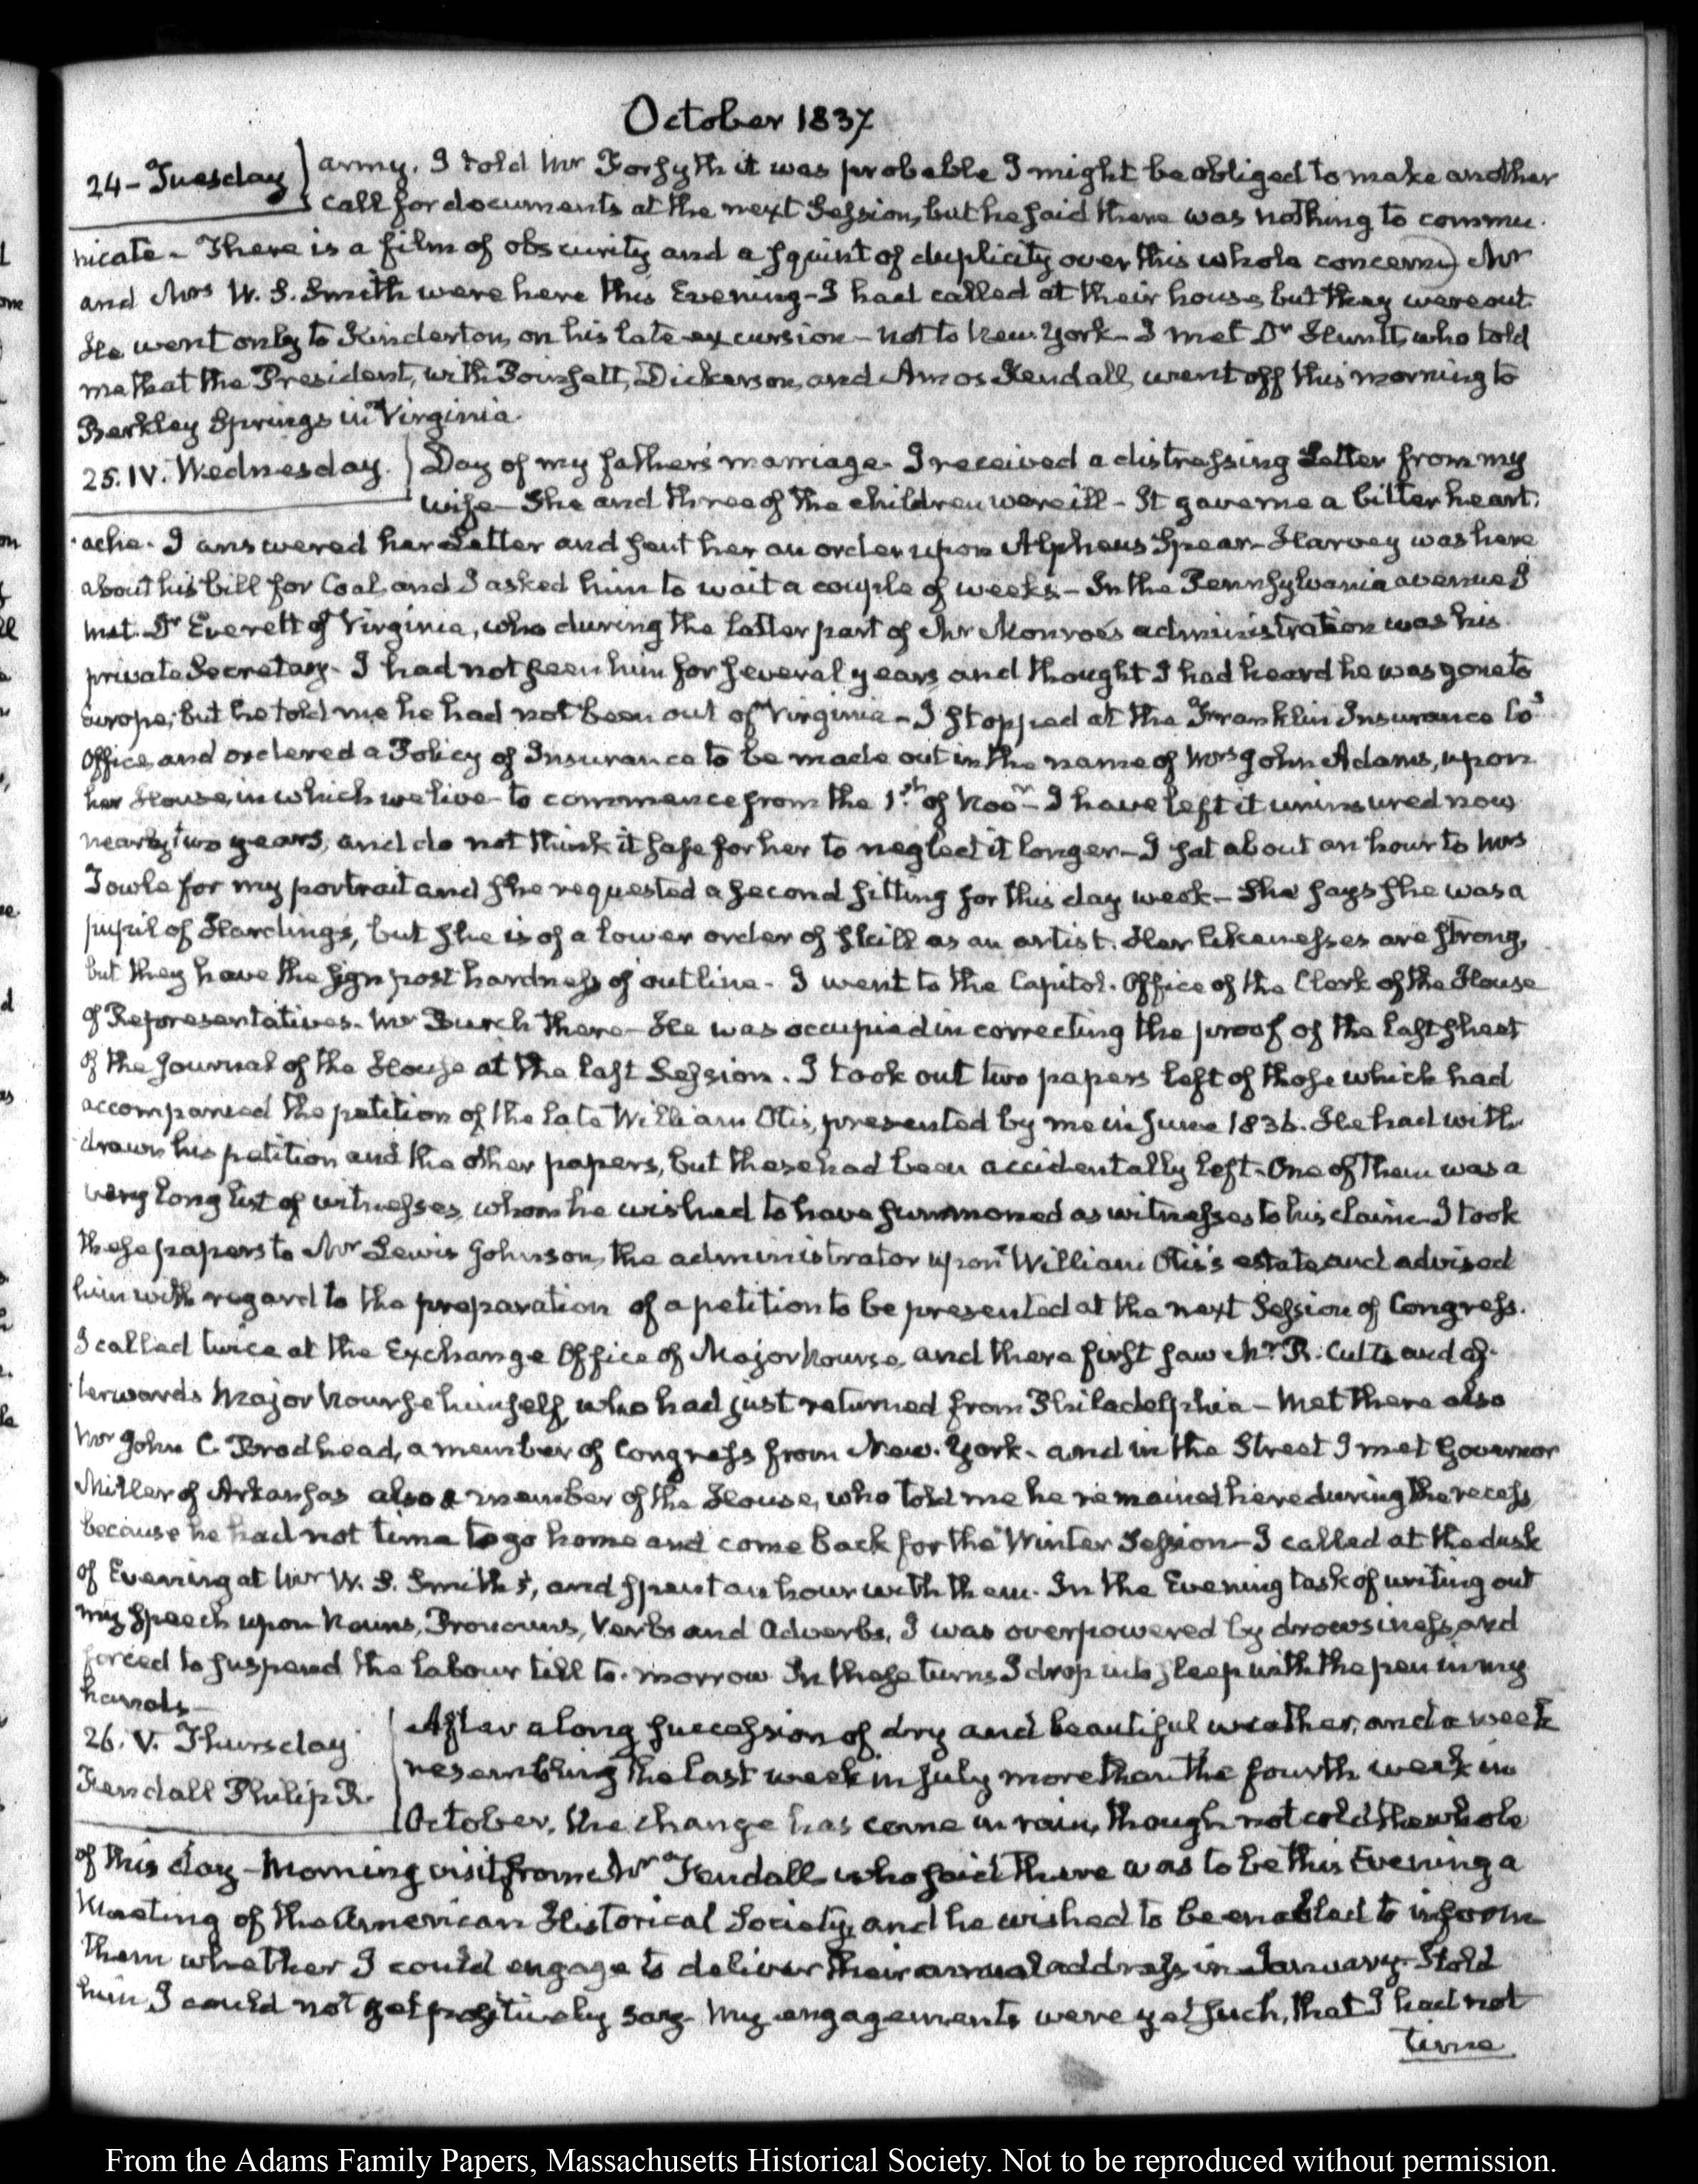 October 1837
24 - Tuesday
army. I told Mr Forsyth it was probable I might be obliged to make another
call for documents at the next Session, but he said there was nothing to commu-
nicate - There is a film of obscurity and a squint of duplicity over this whole concern) Mr
and Mrs W. S. Smith were here this Evening - I had called at their house, but they were out.
He went only to Kinderton, on his late excursion - not to New-York - I met Dr Hunt, who told
me that the President, with Poinsett, Dickerson, and Amos Kendall, went off this morning to
Berkley Springs in Virginia.
25. IV. Wednesday.
Day of my father's marriage. I received a distressing Letter from my
wife - She and three of the children were ill - It gave me a bitter heart-
ache. I answered her Letter and sent her an order upon Alpheus Spear - Harvey was here
about his bill for Coal, and I asked him to wait a couple of weeks - In the Pennsylvania avenue I
met Dr Everett of Virginia, who during the latter part of Mr Monroe's administration was his
private Secretary - I had not seen him for several years, and thought I had heard he was gone to
Europe; but he told me he had not been out of Virginia - I stopped at the Franklin Insurance Co's
Office, and ordered a Policy of Insurance to be made out in the name of Mrs John Adams, upon
her House, in which we live - to commence from the 1st of Novr - I have left it uninsured now
nearly two years, and do not think it safe for her to neglect it longer - I sat about an hour to Mrs
Towle for my portrait and she requested a second sitting for this day week - She says she was a
pupil of Harding's, but she is of a lower order of skill as an artist. Her likenesses are strong,
but they have the sign post hardness of outline - I went to the Capitol. Office of the Clerk of the House
of Representatives. Mr Burch there - He was occupied in correcting the proof of the last sheet
of the Journal of the House at the last Session. I took out two papers left of those which had
accompanied the petition of the late William Otis, presented by me in June 1836. He had with-
drawn his petition and the other papers, but these had been accidentally left - One of them was a
very long list of witnesses, whom he wished to have summoned as witnesses to his claim - I took
these papers to Mr Lewis Johnson, the administrator upon William Otis's estate, and advised
him with regard to the preparation of a petition to be presented at the next Session of Congress.
I called twice at the Exchange Office of Major Nourse, and there first saw Mr R. Cutts and af-
terwards Major Nourse himself, who had just returned from Philadelphia - Met there also
Mr John C. Brodhead, a member of Congress from New-York - and in the Street I met Governor
Miller of Arkansas also a member of the House, who told me he remained here during the recess
because he had not time to go home and come back for the Winter Session - I called at the dusk
of Evening at Mr W. S. Smith's, and spent an hour with them. In the Evening task of writing out
my speech upon Nouns, Pronouns, Verbs and Adverbs, I was overpowered by drowsiness, and
forced to suspend the labour till to-morrow. In these turns I drop into sleep with the pen in my
hands -
26. V. Thursday
Fendall Philip R.
After a long succession of dry and beautiful weather, and a week
resembling the last week in July more than the fourth week in
October, the change has come in rain, though not cold the whole
of this day - Morning visit from Mr Fendall who said there was to be this Evening a
Meeting of the American Historical Society, and he wished to be enabled to inform
them whether I could engage to deliver their annual address in January - I told
him I could not yet positively say. My engagements were yet such, that I had not
time
From the Adams Family Papers, Massachusetts Historical Society. Not to be reproduced without permission.